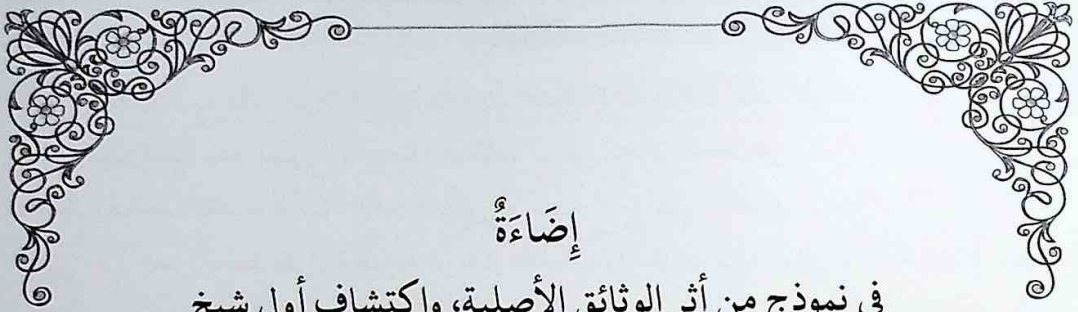 إِضَاءَةٌ
في نموذج من أثر الوثائق الأصلية، واكتشاف أول شيخ